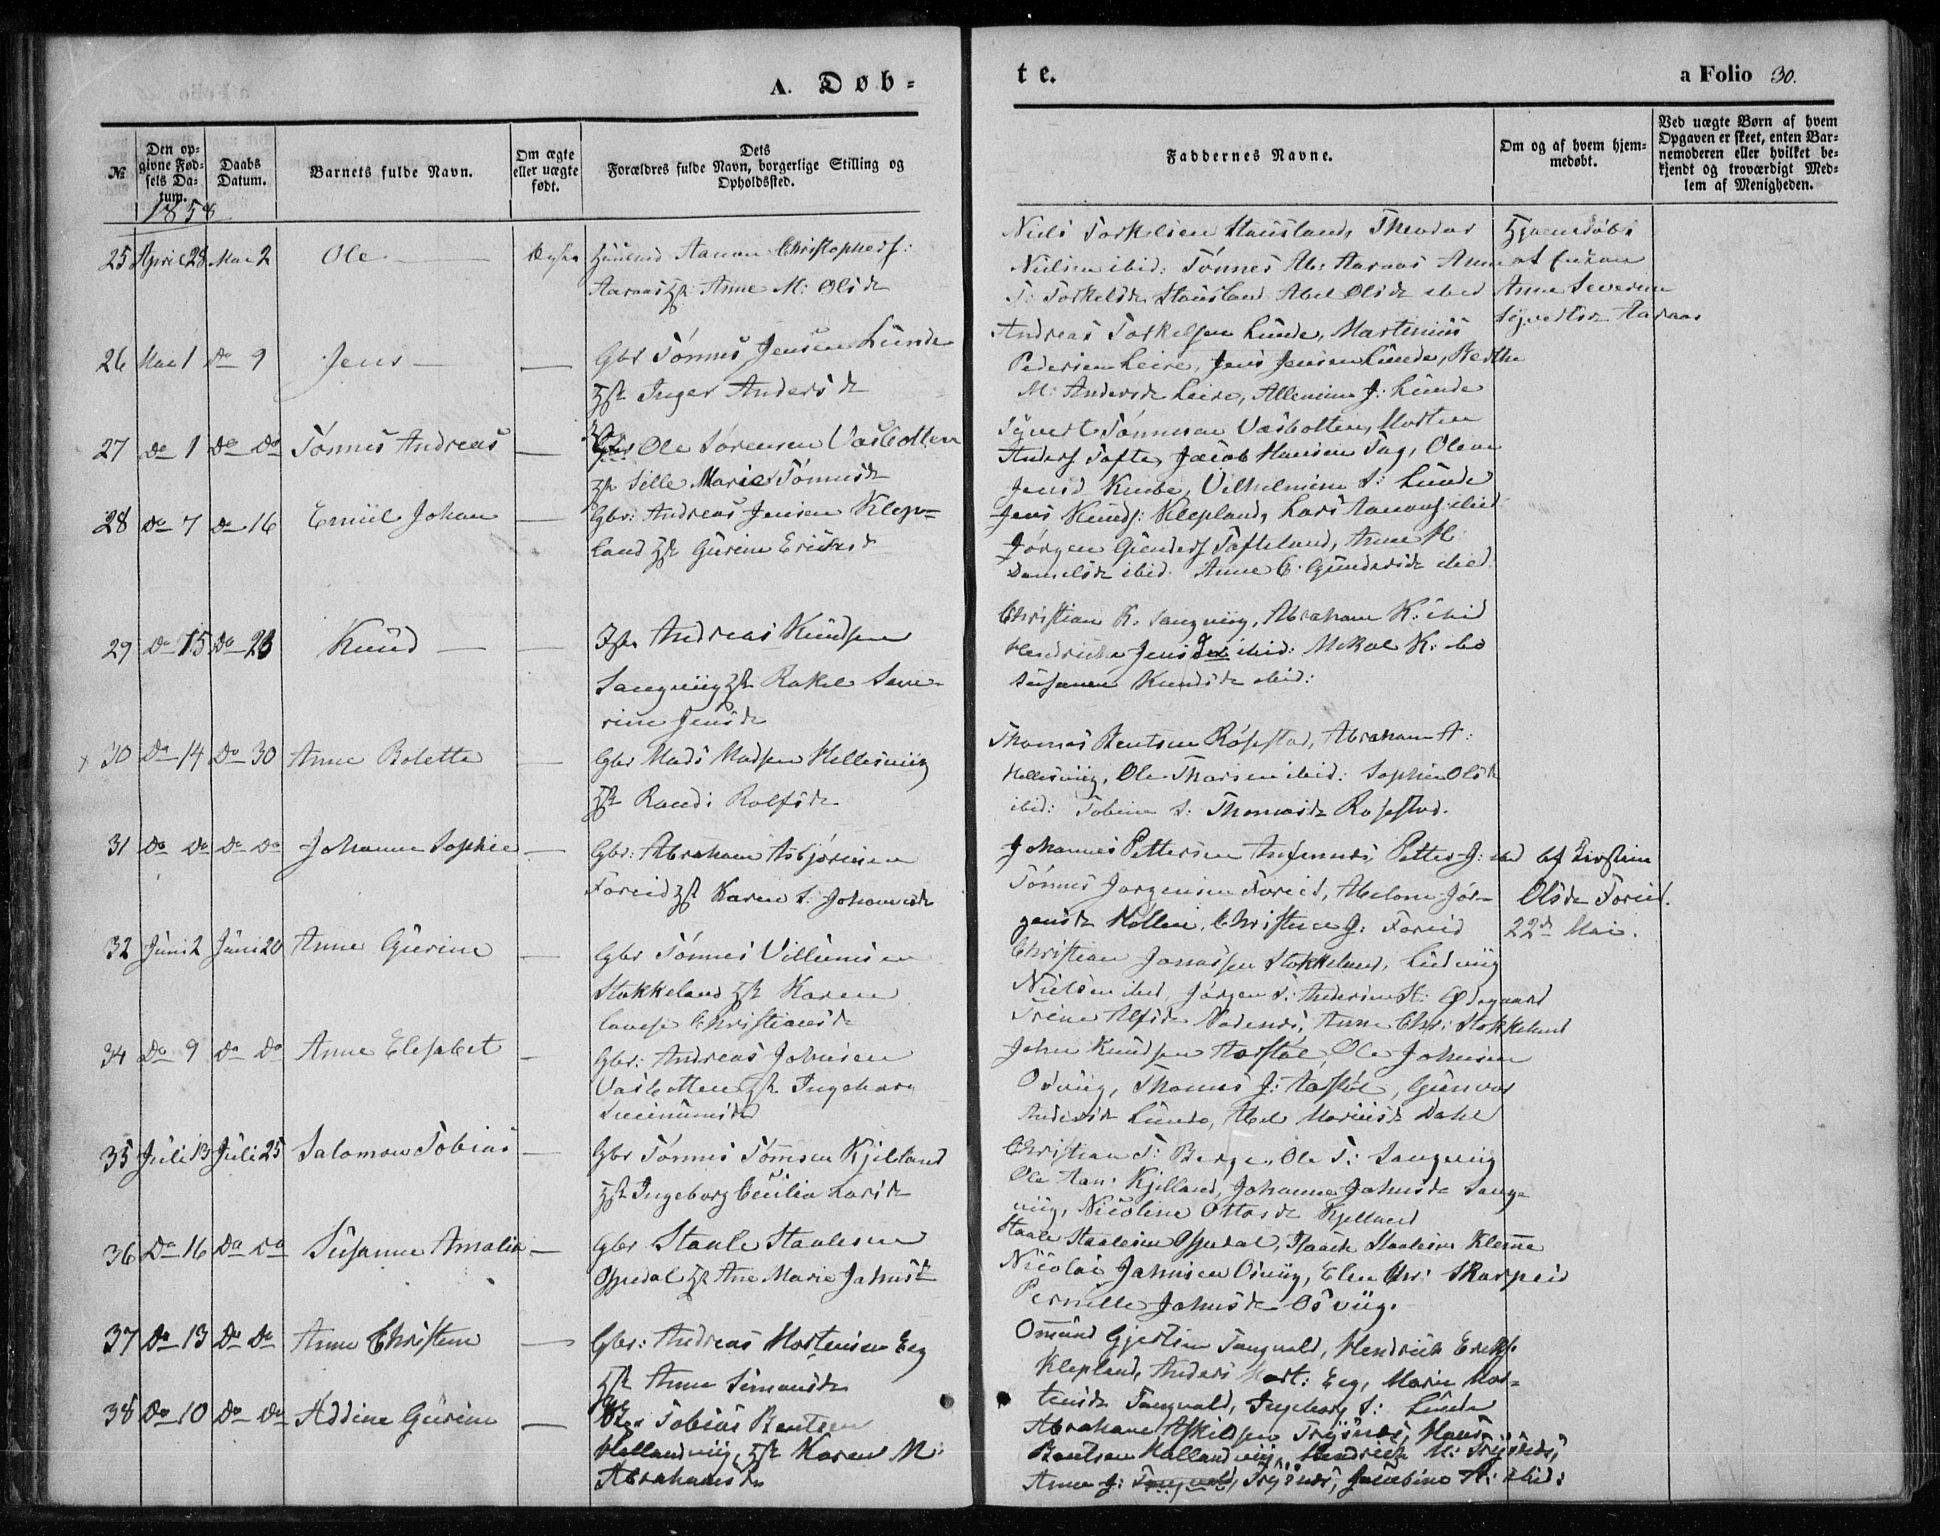 A. Døb-
te.
a Folio 30.
№
Den opgivne Fødsels Datum.
Daabs Datum.
Barnets fulde Navn.
Om ægte eller uægte født.
Dets Forældres fulde Navn, borgerlige Stilling og Opholdssted.
Faddernes Navne.
Om og af hvem hjemmedøbt.
Ved uægte Børn af hvem Opgaven er skeet, enten Barnemoderen eller hvilket bekjendt og troværdigt Medlem af Menigheden.
1858
25 April 28 Mai 2 Ole
Aanon Christophers:
Aaraas Hst Anne M: Olsdr
Niels Torkelsen Stausland, Theodor
Nielsen ibid: Tönnes Ab: Aaraas Anne
T: Torkelsdr Stausland Abel Olsdr ibid
Hjemdøbt
af
Anne Severine
Syvertsdr Aaraas
26 Mai 1 Do 9 Jens — —
Gbr Tönnes Jensen Lunde
Hst Inger Andersdr
Andreas Torkelsen Lunde, Martinius
Pedersen Leire, Jens Jensen Lunde, Berthe
M: Andersdr Leire, Allenine J: Lunde
27 Do 1 Do Do Tönnes Andreas —
Ole Sørensen Vasbotten
Hst Sille Marie Tönnesdr
Syvert Tönnesen Vasbotten, Morten
Anders Tofte, Jacob Hansen Tag, Olene
Jensd Kube, Vilhelmine S: Lunde
28 Do 7 Do 16 Emiil Johan —
Gbr: Andreas Jensen Klep-
land Hst Gurine Ericksdr
Jens Knuds: Klepland, Lars Aanons ibid
Jörgen Gunders Tofteland, Anne M:
Danielsdr ibid. Anne C. Gundersdr ibid
29 Do 15 Do 23 Knud — —
Andreas Knudsen
Langviig Hst Rakel Seve-
rine Jensdr
Christian K. Langviig, Abraham K. ibid
Hendrikke Jensdr ibid: Mikal K: ibd
Susanne Knudsdr ibid:
x 30 Do 14 Do 30 Anne Bolette —
Gbr Mads Madsen Hellesviig
Hst Randi Rolfsdr
Thomas Bentsen Rösestad, Abraham A:
Hellesviig, Ole Tharsen ibid: Sophie Olsdr
ibid: Tobine S: Thomasdr Rosestad.
31 Do Do Do Do Johanne Sophie —
Gbr: Abraham Asbjörnsen
Foreid Hst Karen S: Johannesdr
Johannes Pettersen, Petter J: ibid
Tönnes Jörgensen Foreid, Abelone Jör-
gensdr Hollen, Christense J: Foreid
af Kirstine
Olsdr Foreid.
22de Mai.
32 Juni 2 Juni 20 Anne Gurine —
Gbr Tönnes Villumsen
Stokkeland Hst Karen
Lovise Christiansdr
Christian Jonassen Stokkeland, Ludvig
Nielsen ibid, Jörgen S: Andersen St: Ødegaard
Trine Alfsdr Nodenes, Anne Chr: Stokkeland
34 Do 9 Do Do Anne Elesabet —
Gbr: Andreas Johnsen
Vasbotten Hst Ingeborg
John Knudsen Aastöl, Ole Johnsen
Osviig, Thomas J: Aastöl, Gunvor
Andersdr Lunde, Abel Mariusdr Dahl
35 Juli 13 Juli 25 Salomon Tobias —
Gbr Tönnes Tönnesen Kjelland
Hst Ingeborg Cecilia Larsdr
Christian T: Berge, Ole T: Langviig
Ole Aan: Kjelland, Johanne Johnsdr Lang-
viig, Nicoline Ottosdr Kjelland
36 Do 16 Do Do Susanne Amalia —
Gbr Staale Staalesen
Opsedal Hst Ane Marie Johnsdr
Staale Staalesen Opsedal, Isaack Staalesen Kleve
Nicolai Johnsen Osviig, Elen Chr: Skarpeid
Pernille Johnsdr Osviig.
37 Do 13 Do Do Anne Christine —
Gbr: Andreas Mortensen Eeg
Hst Anne Simonsdr
Omund Gjertsen Tangvald, Hendrick Ericks:
Klepland, Anders Mort: Eeg, Marie Mor-
tensdr Tangvald, Ingeborg S: Lunde
38 Do 10 Do Do Addine Gurine —
Tobias Bentsen
Hellandviig, Hst Karen M:
Abrahamsdr
Abraham Askildsen Trysnes, Hans
Bentsen Hallandviig, Hendrick M: Trysnes,
Anne J: Trysnes, Jacobine A: ibid: